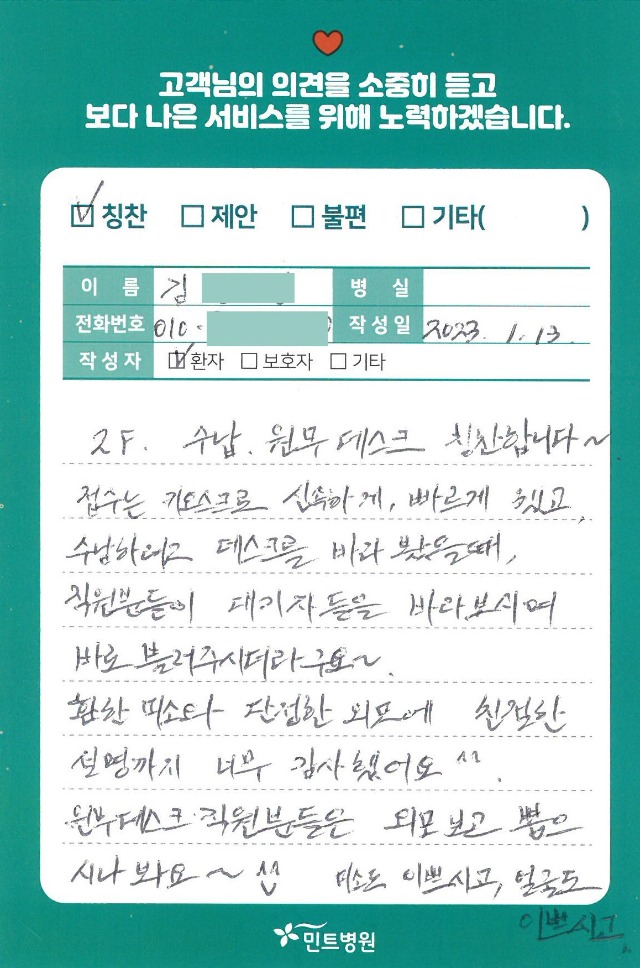 고객님의 의견을 소중히 듣고
보다 나은 서비스를 위해 노력하겠습니다.
칭찬 제안 불편 기타( )
이 름 김 병 실
전화번호 010- 작성일 2023. 1. 13.
작성자 환자 보호자 기타
2F. 수납. 원무데스크 칭찬합니다~
접수는 키오스크로 신속하게, 빠르게 했고,
수납하려고 데스크를 바라 봤을때,
직원분들이 대기자들을 바라보시며
바로 불러주시더라구요~.
환한 미소와 단정한 외모에 친절한
설명까지 너무 감사했어요 ^^.
원무데스크 직원분들은 외모보고 뽑으
시나 봐요~ ^^ 미소도 이쁘시고, 얼굴도
이쁘시고..
민트병원